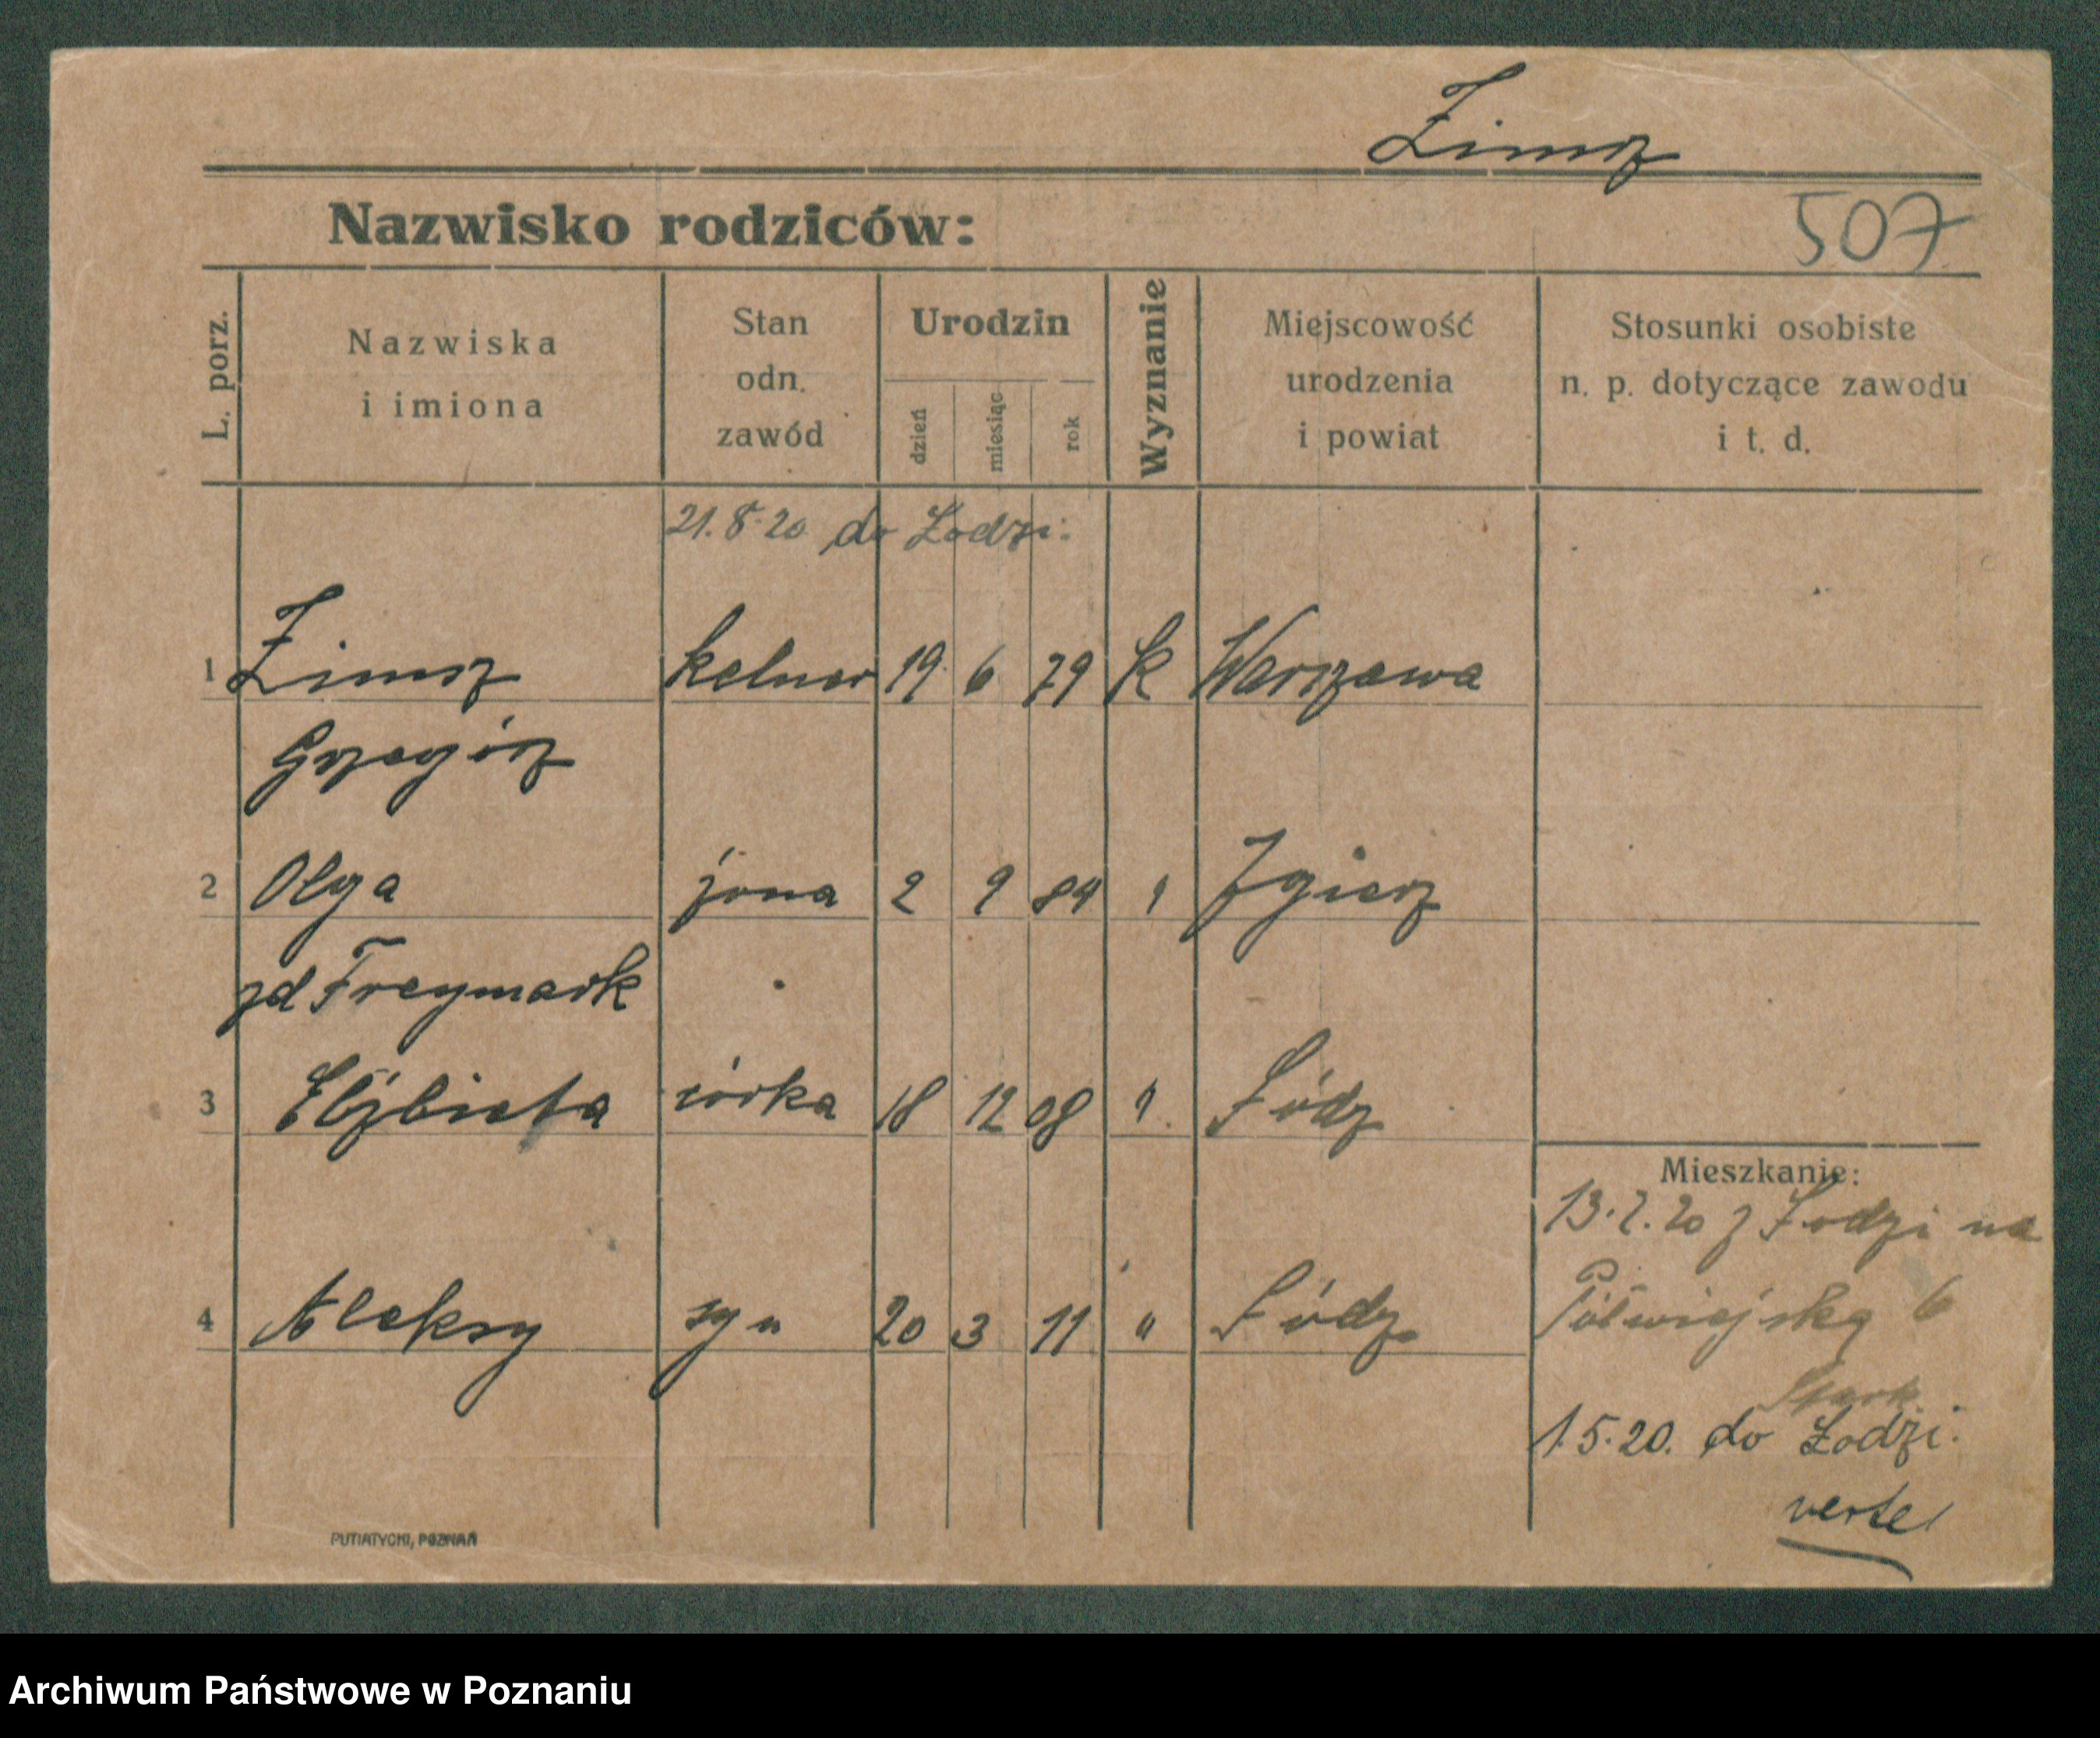 Zimsz
Nazwisko rodziców:
507
L. porz.
Nazwiska i imiona
Stan odn. zawód
Urodzin
dzień
miesiąc
rok
Wyznanie
Miejscowość urodzenia i powiat
Stosunki osobiste n. p. dotyczące zawodu i t. d.
21.8.20 do Łodzi.
1 Zimsz kelner 19 6 79 k Warszawa
Grzegórz
2 Olga żona 2 9 84 " Zgierz
zd Freymark
3 Elżbieta córka 18 12 08 " Łódz
Mieszkanie:
13.2.20 z Łodzi na
4 Aleksy syn 20 3 11 " Łódz
Półwiejską 6
1.5.20. do Łodzi.
verte
PUTIATYCKI, POZNAŃ
Archiwum Państwowe w Poznaniu